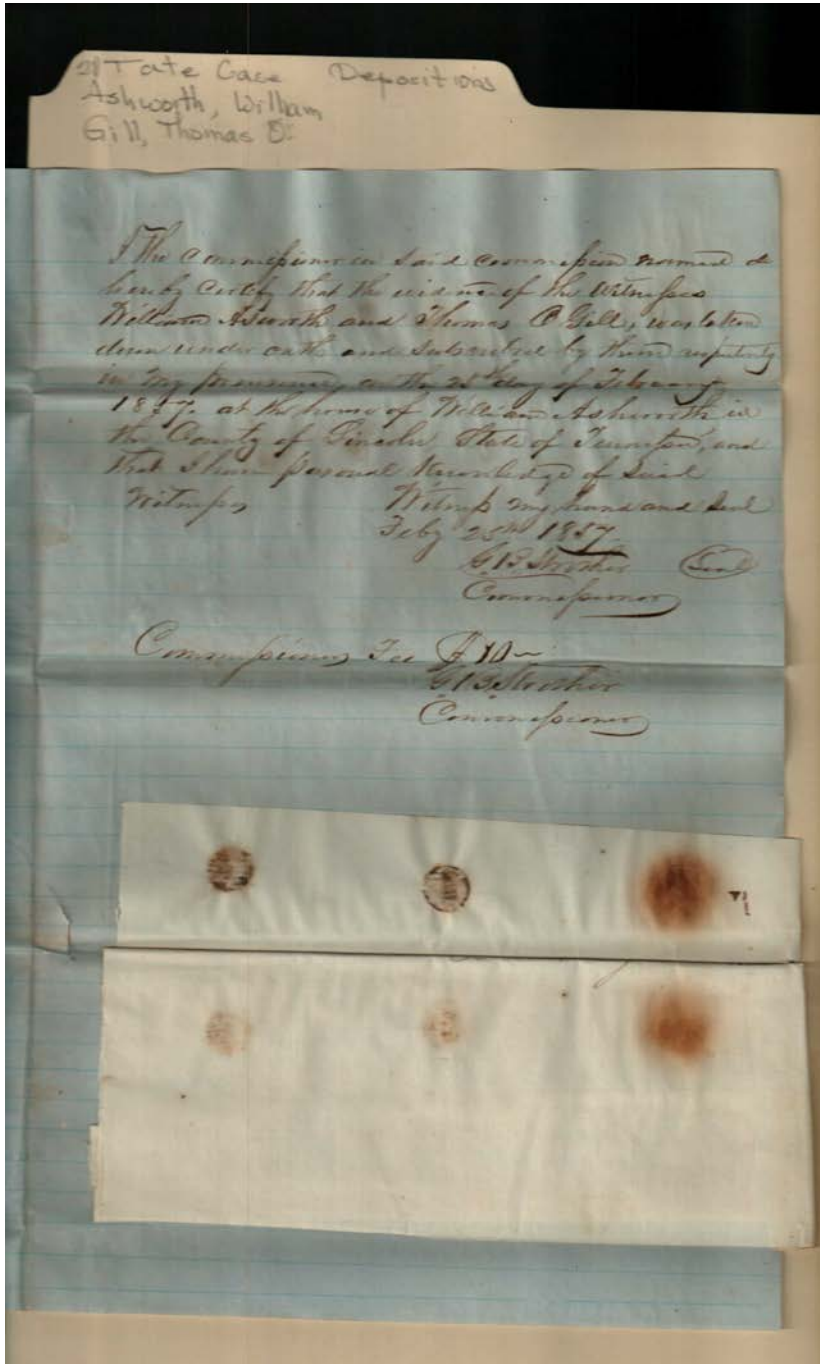 Tate Case Depositions
Ashworth, William
Gill, Thomas
I the commissioner in said commission named do
hereby certify that the evidence of the Witnesses
William Asworth and Thomas Gill, was taken
down under oath and subscribed by them respectively
in my presence, on the 25th day of February
1857. at the house of William Ashworth in
the County of Lincoln State of Tennessee, and
that I have personal Knowledge of said
Witnesses Witness my hand and Seal
Feby 25th 1857
G.B. Strother Seal
Commissioner
Commissioners Fee $10
G.B. Strother
Commissioner